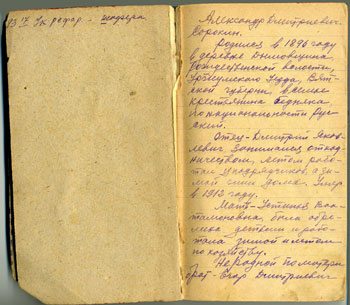 Александр Дмитриевич
Сорокин.
Родился в 1896 году
в деревне Дымовщина
Рождественской волости,
Уржумского уезда, Вят-
ской губернии, в семье
крестьянина бедняка,
по национальности Рус-
ский.
Отец - Дмитрий Яков-
левич занимался отход-
ничеством, летом рабо-
тал у подрядчиков, а зи-
мой дома. Умер
в 1913 году.
Мать - Устинья
была обре-
мена детьми и рабо-
тала зимой и летом
по хозяйству.
Не родной по матери
брат - Егор Дмитриевич